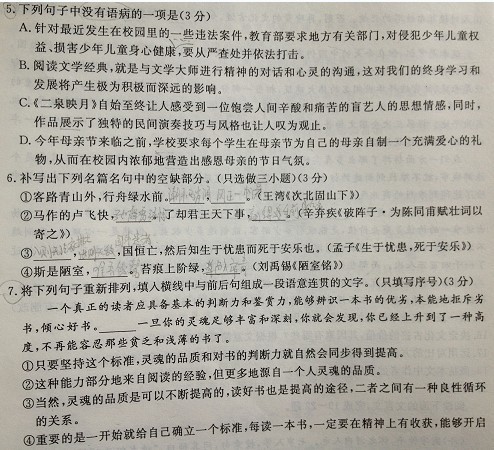 5.下列句子中没有语病的一项是(3分)
A.针对最近发生在校园里的一些违法案件,教育部要求地方有关部门,对侵犯少年儿童权
益、损害少年儿童身心健康,要从严查处并依法打击。
B.阅读文学经典,就是与文学大师进行精神的对话和心灵的沟通,这对我们的终身学习和
发展将产生极为积极而深远的影响。
C.《二泉映月》自始至终让人感受到一位饱尝人间辛酸和痛苦的盲艺人的思想情感,同时,
作品展示了独特的民间演奏技巧与风格也让人叹为观止。
D.今年母亲节来临之前,学校要求每个学生在母亲节为自己的母亲自制一个充满爱心的礼
物,从而在校园内浓郁地营造出感恩母亲的节日气氛。
6.补写出下列名篇名句中的空缺部分。(只选做三小题)(3分)
①客路青山外,行舟绿水前。 , 。(王湾《次北固山下》)
②马作的卢飞快, 了却君王天下事, 。(辛弃疾《破阵子·为陈同甫赋壮词以
寄之》)
③ , ,国恒亡,然后知生于忧患而死于安乐也。(孟子《生于忧患,死于安乐》)
④斯是陋室, 。苔痕上阶绿, 。(刘禹锡《陋室铭》)
7.将下列句子重新排列,填入横线中与前后句组成一段语意连贯的文字。(只填写序号)(3分)
一个真正的读者应具备基本的判断力和鉴赏力,能够辨识一本书的优劣,本能地拒斥劣
书,倾心好书。______一旦你的灵魂足够丰富和深刻,你就会发现,你已经上升到了一种高
度,不再能容忍那些贫乏和浅薄的书了。
①只要坚持这个标准,灵魂的品质和对书的判断力就自然会同步得到提高。
②这种能力部分地来自阅读的经验,但更多地源自一个人灵魂的品质。
③当然,灵魂的品质是可以不断提高的,读好书也是提高的途径,二者之间有一种良性循环
的关系。
④重要的是一开始就给自己确立一个标准,每读一本书,一定要在精神上有收获,能够开启